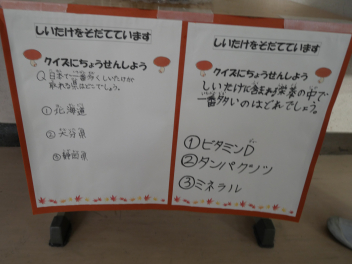 しいたけをそだてています
クイズにちょうせんしよう
Q 日本で一番多くしいたけが
取れる県はどこでしょう。
①北海道
②大分県
③静岡県
しいたけをそだてています
クイズにちょうせんしよう
しいたけに含まれる栄養の中で
一番多いのはどれでしょう。
①ビタミンD
②タンパクシツ
③ミネラル